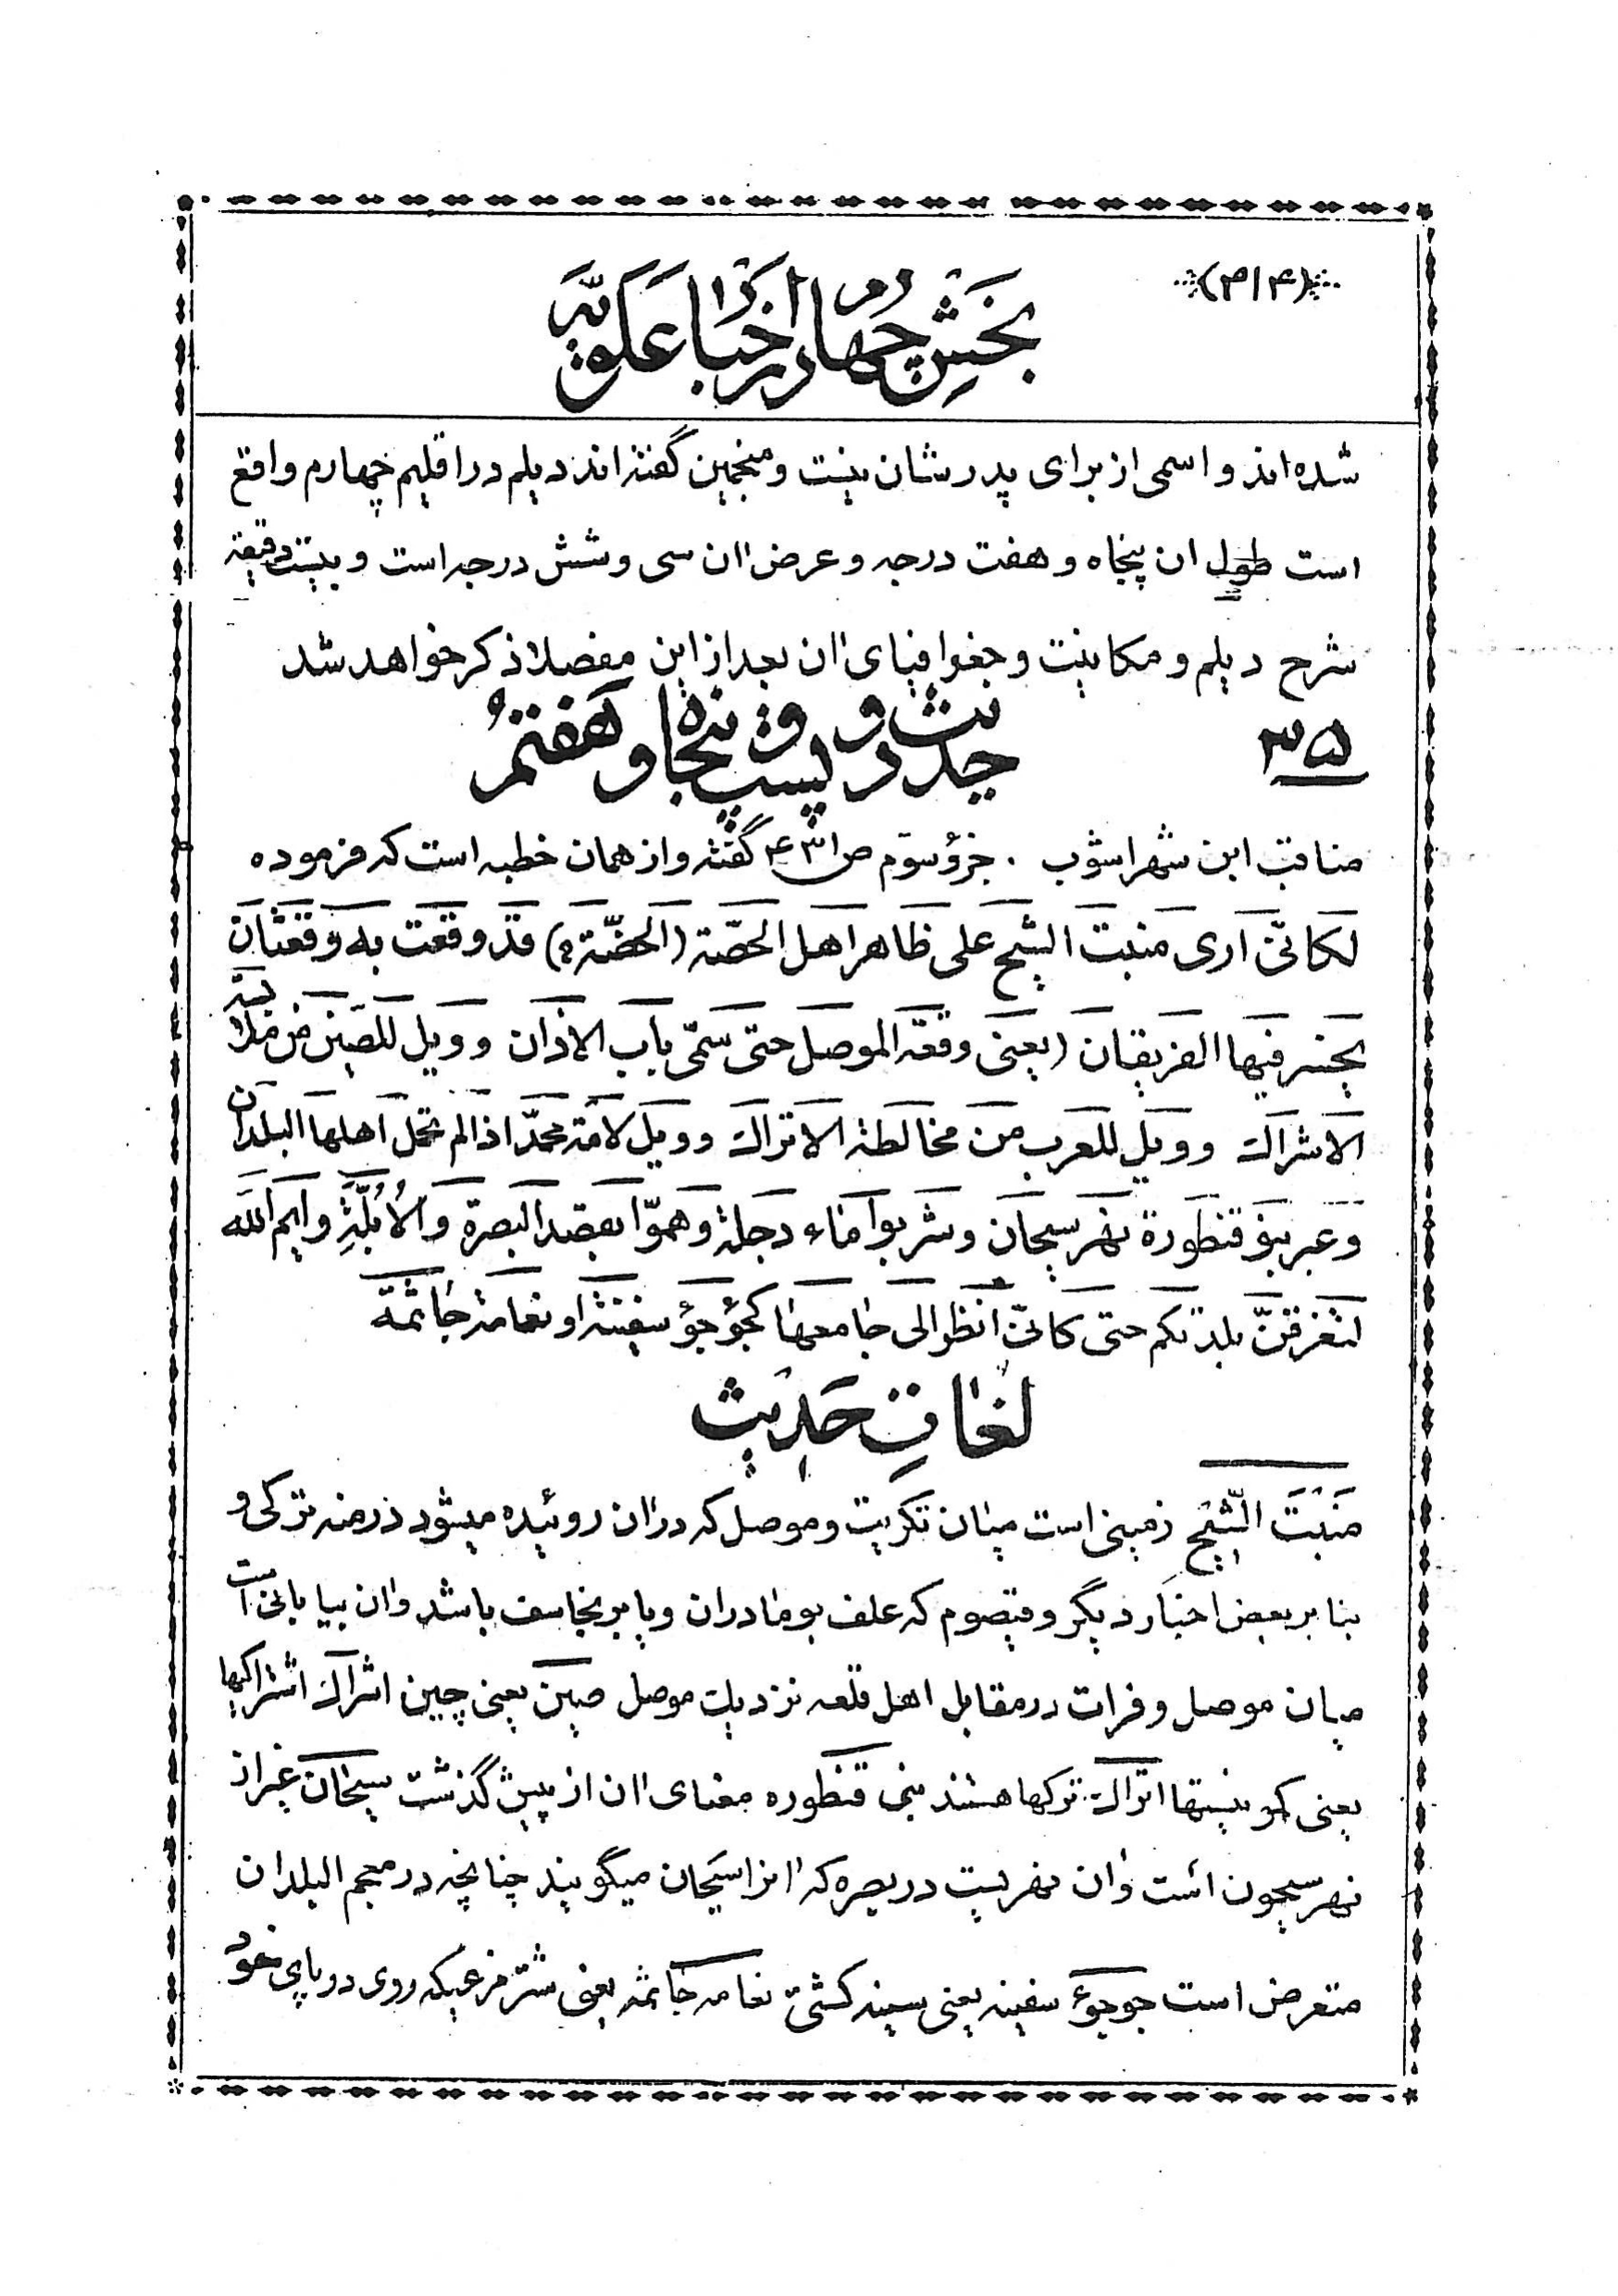 (۳۱۴)
بخش چهارم از اخبار علویه
شده اند و اسمی از برای پدرشان نیست و منجمین گفته اند دیلم در اقلیم چهارم واقع
است طول ان پنجاه و هفت درجه و عرض ان سی و شش درجه است و بیست دقیقه
شرح دیلم و مکانیت و جغرافیای ان بعد از این مفصلا ذکر خواهد شد
۳۵
حدیث دویست و پنجاه و هفتم
مناقب ابن شهراشوب . جزؤ سوّم ص ۴۳۱ گفته و از همان خطبه است که فرموده
لکانّی اری منبت الشیح علی ظاهر اهل الحصّة (الحضّة ؟) قد وقعت به وقعتان
یخسر فیها الفریقان (یعنی وقعة الموصل حتی سمّی باب الاذان و ویل للصّین من ملابسة
الاشراک و ویل للعرب من مخالطة الاتراک و ویل لامّة محمّد اذا لم تحمل اهلها البلدان
و عبر بنو قنطورة نهر سیحان و شربوا ماء دجلة و همّوا بقصد البصرة و الاُبُلَّةِ و ایم اللّه
لتغرقنّ بلدتکم حتی کانّی انظر الی جامعها کجؤجؤ سفینة او نعامة جاثمة
لغات حدیث
منبت الشّیح زمینی است میان تکریت و موصل که در ان روئیده میشود درمنه ترکی و
بنا بر بعض اخبار دیگر و قیصوم که علف بومادران و یا برنجاسف باشد و ان بیابانی است
میان موصل و فرات در مقابل اهل قلعه نزدیک موصل صین یعنی چین اشراک اشتراکیها
یعنی کمونیستها اتراک ترکها هستند بنی قنطوره معنای ان از پیش گذشت سیحان غیر از
نهر سیحون است و ان نهریست در بصره که انرا سیحان میگویند چنانچه در معجم البلدان
متعرض است جوجؤ سفینه یعنی سینه کشتی نعامه جاثمه یعنی شترمرغیکه روی دو پای خود